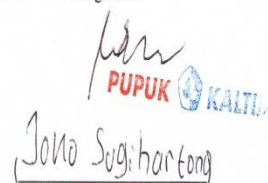 PUPUK KALTIM
Jono Sugihartong